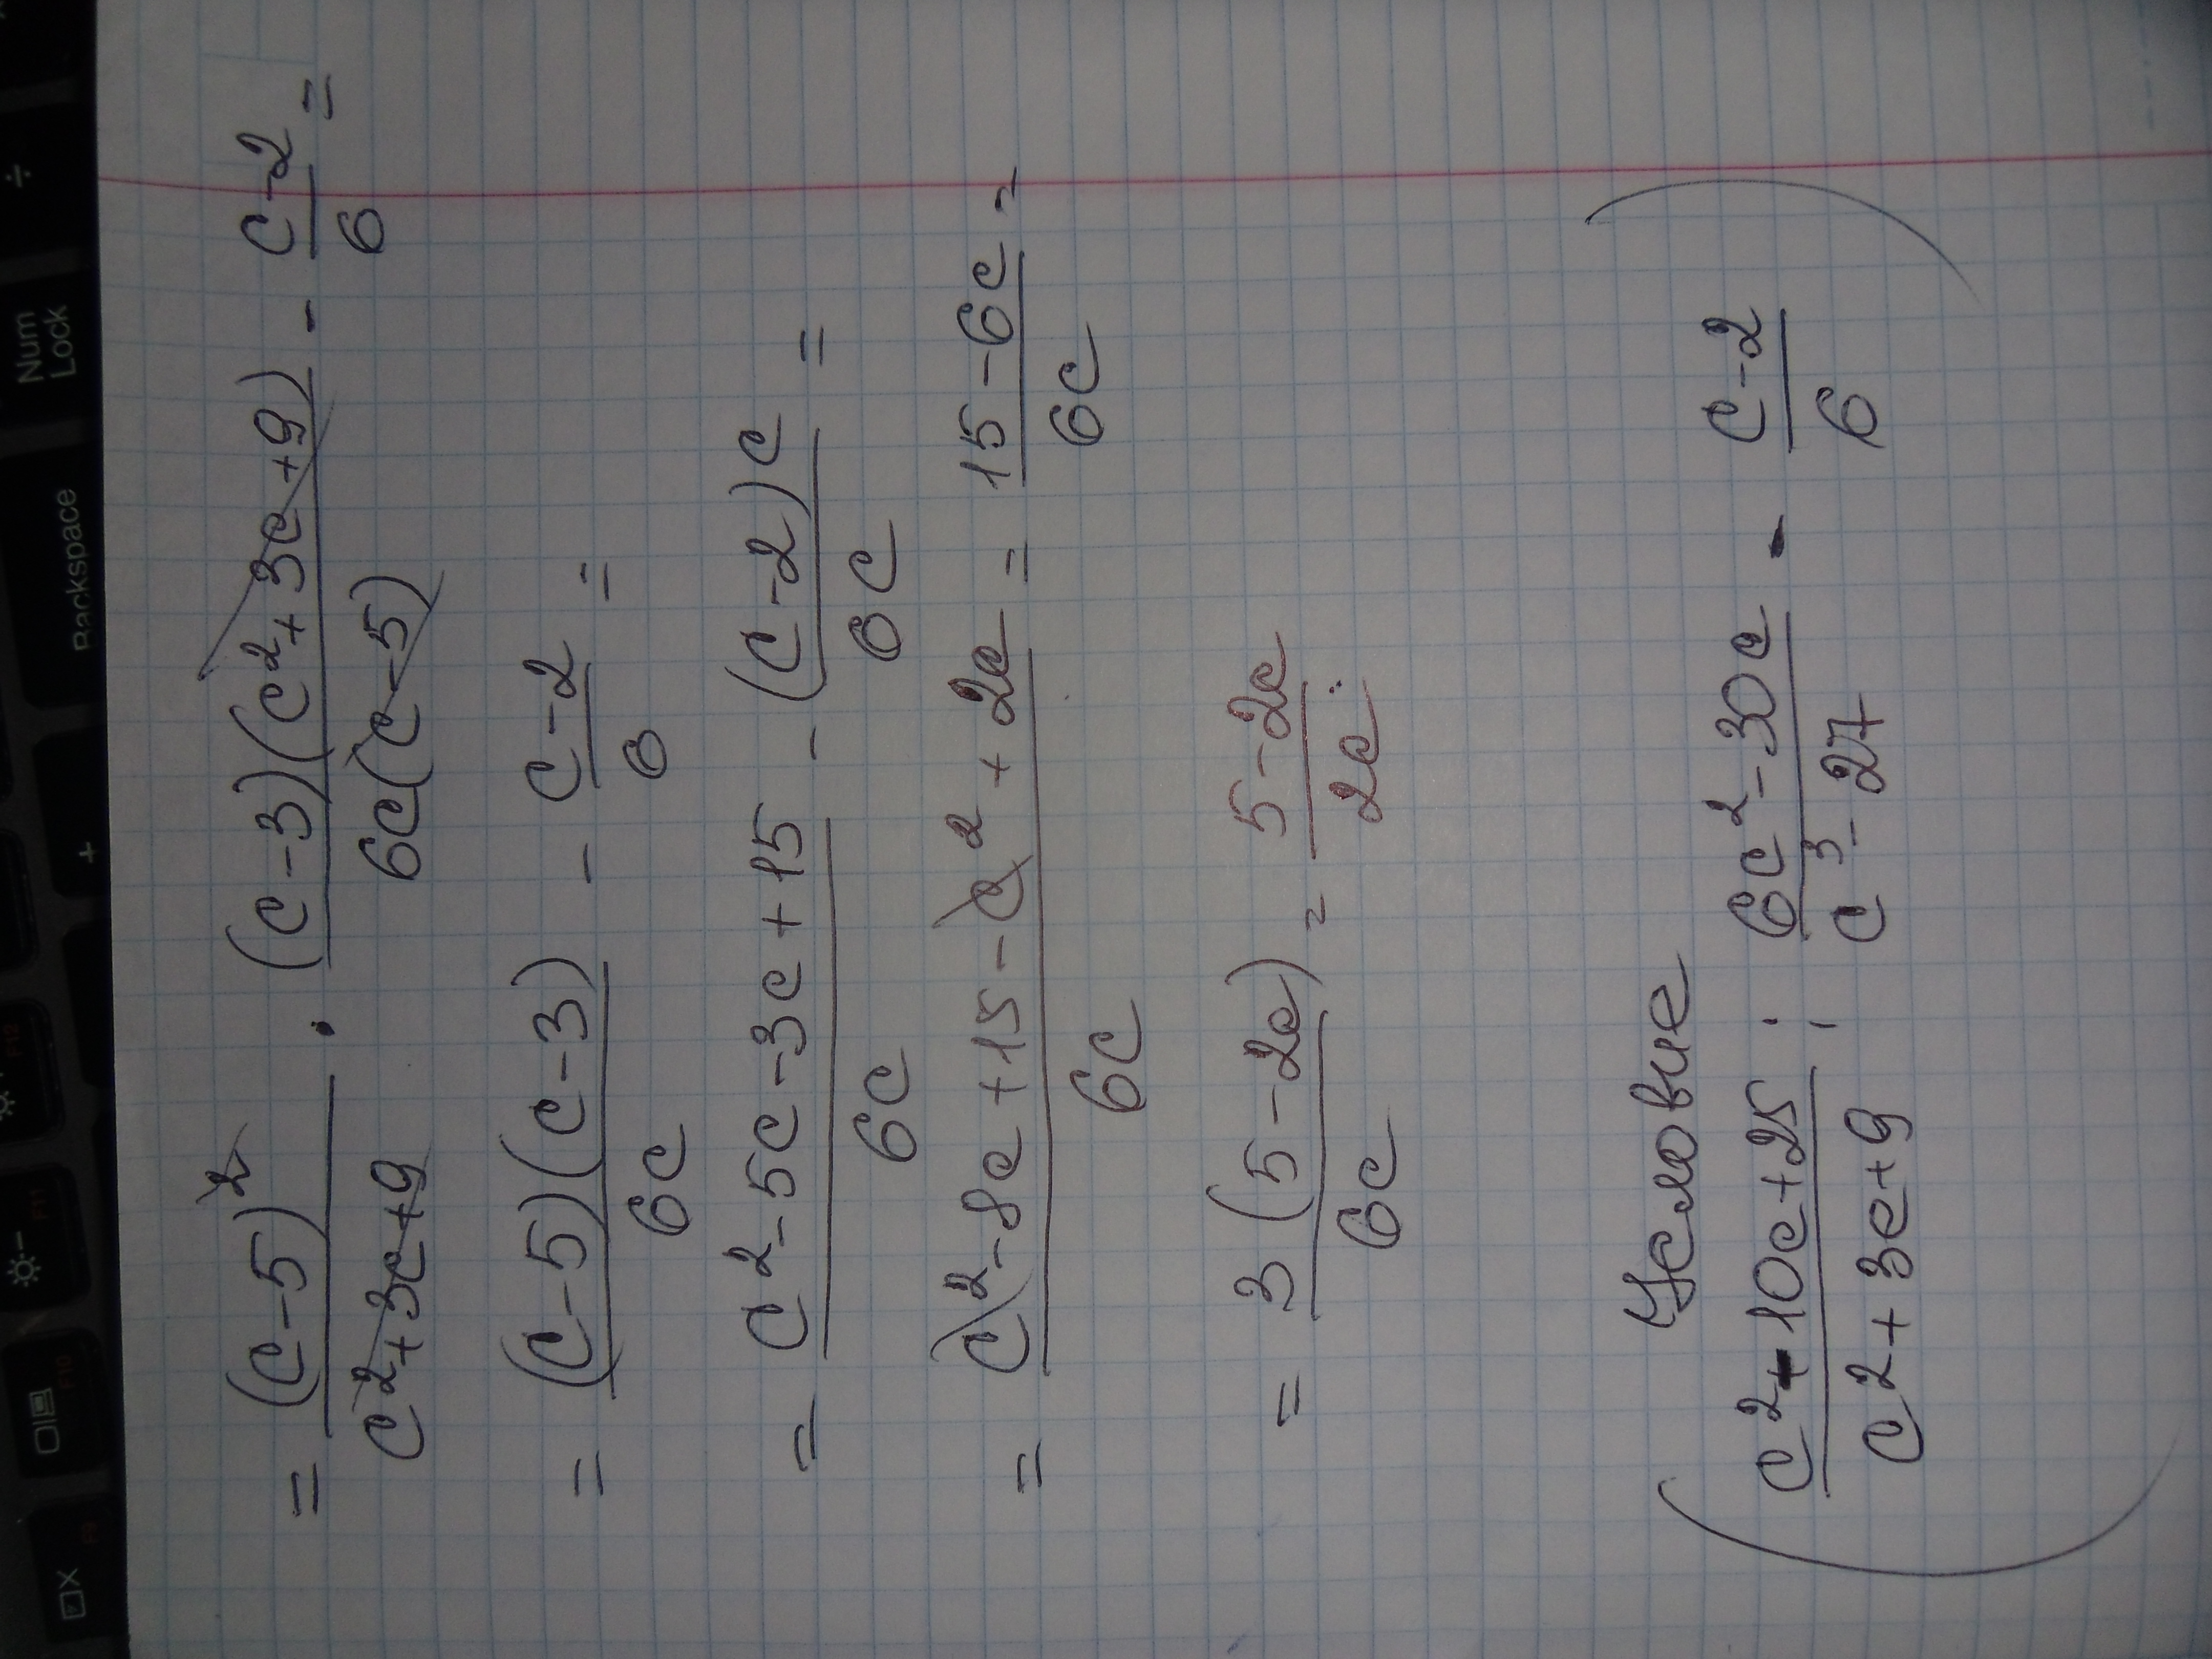 = (c-5)²/(c²+3c+9) · (c-3)(c²+3c+9)/(6c(c-5)) - (c-2)/6 =
= (c-5)(c-3)/(6c) - (c-2)/6 =
= (c²-5c-3c+15)/(6c) - (c-2)c/(6c) =
= (c²-8c+15-c²+2c)/(6c) = (15-6c)/(6c) =
= 3(5-2c)/(6c) = (5-2c)/(2c).
Условие
(c²-10c+25)/(c²+3c+9) : (6c²-30c)/(c³-27) - (c-2)/6
Num
Lock
Backspace
+
÷
F12
F11
F10
F9